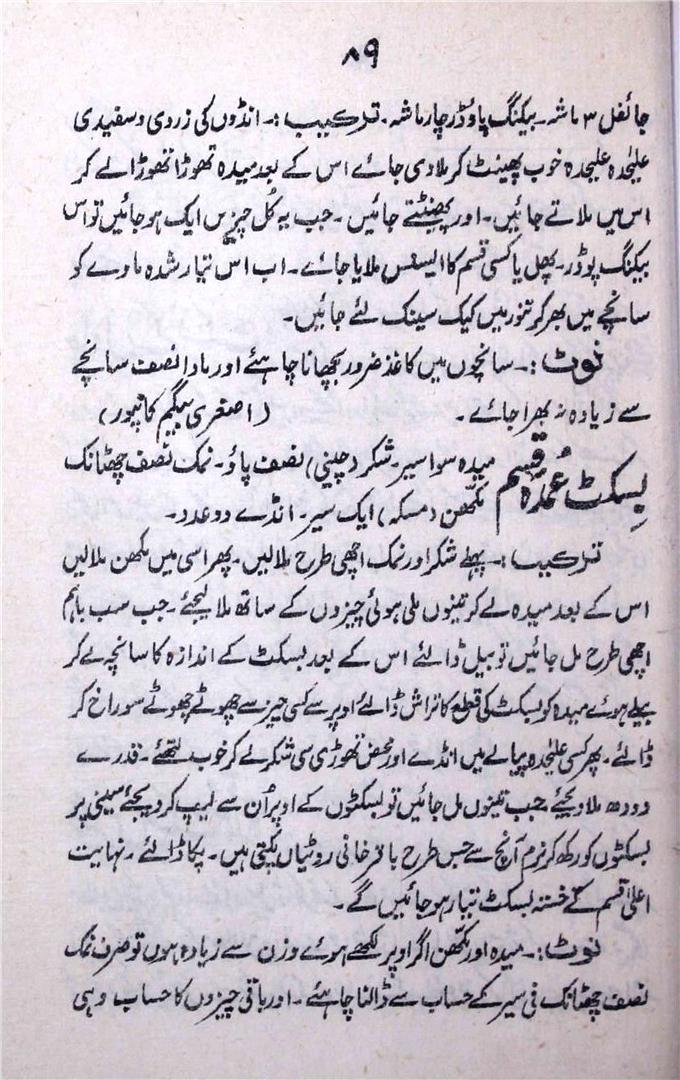 ۸۹
جائفل ۳ ماشہ۔ بیکنگ پاؤڈر چار ماشہ۔ ترکیب :۔ انڈوں کی زردی و سفیدی
علیٰحدہ علیٰحدہ خوب پھینٹ کر ملا دی جائے اس کے بعد میدہ تھوڑا تھوڑا لے کر
اس میں ملاتے جائیں۔ اور پھینٹتے جائیں۔ جب یہ کُل چیزیں ایک ہو جائیں تو اس
بیکنگ پوڈر۔ پھل یا کسی قسم کا ایسنس ملایا جائے۔ اب اس تیار شدہ ماوے کو
سانچے میں بھر کر تنور میں کیک سینک لئے جائیں۔
نوٹ :۔ سانچوں میں کاغذ ضرور بچھانا چاہئے اور مادا نصف سانچے
سے زیادہ نہ بھرا جائے۔ (اصغری بیگم کانپور)
بِسکٹ عُمدہ قسم میدہ سوا سیر۔ شکر (چینی) نصف پاؤ۔ نمک نصف چھٹانک
مکھّن (مسکہ) ایک سیر۔ انڈے دو عدد۔
ترکیب :۔ پہلے شکر اور نمک اچھی طرح ملا لیں۔ پھر اسی میں مکھن ملا لیں
اس کے بعد میدہ لے کر تینوں ملی ہوئی چیزوں کے ساتھ ملا لیجئے۔ جب سب باہم
اچھی طرح مل جائیں تو بیل ڈالئے اس کے بعد بسکٹ کے اندازہ کا سانچہ لے کر
بیلے ہوئے میدہ کو بسکٹ کی قطع کا تراش ڈالئے اوپر سے کسی چیز سے چھوٹے چھوٹے سوراخ کر
ڈالئے۔ پھر کسی علیٰحدہ پیالے میں انڈے اور محض تھوڑی سی شکر لے کر خوب متھئے۔ قدرے
دودھ ملا دیجئے۔ جب تینوں مل جائیں تو بسکٹوں کے اوپر اُن سے لیپ کر دیجئے سینی پر
بسکٹوں کو رکھ کر نرم آنچ سے جس طرح باقر خانی روٹیاں پکتی ہیں۔ پکا ڈالئے۔ نہایت
اعلیٰ قسم کے خستہ بسکٹ تیار ہو جائیں گے۔
نوٹ :۔ میدہ اور مکھّن اگر اوپر لکھے ہوئے وزن سے زیادہ ہوں تو صرف نمک
نصف چھٹانک فی سیر کے حساب سے ڈالنا چاہئے۔ اور باقی چیزوں کا حساب وہی